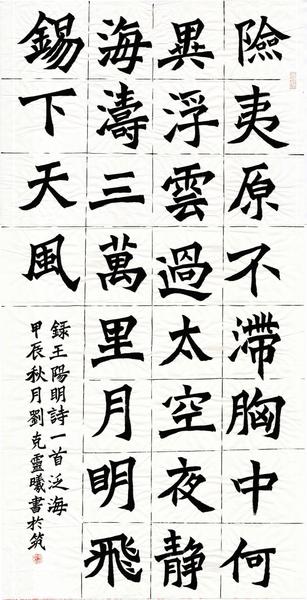 險夷原不滯胸中何
異浮雲過太空夜靜
海濤三萬里月明飛
錫下天風
録王陽明詩一首泛海
甲辰秋月劉克靈曦書於筑